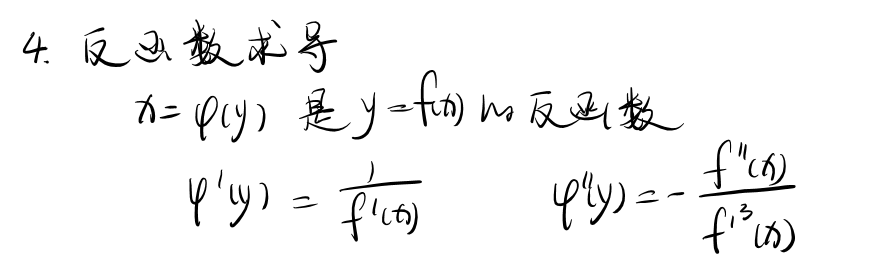 4. 反函数求导
x=φ(y) 是 y=f(x) 的反函数
φ'(y) = 1/f'(x)    φ''(y) = - f''(x)/f'³(x)